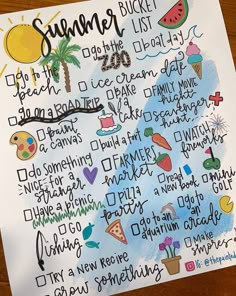 Summer BUCKET LIST
go to the beach
go to the ZOO
boat day
ice cream date
go on a ROAD TRIP
bake a cake
FAMILY MOVIE night
scavenger hunt
paint a canvas
build a fort
WATCH fireworks
do something NICE for a stranger
FARMERS market
read a new Book
mini GOLF
Have a picnic
PIZZA party
GO fishing
go to an aquarium
go to an arcade
TRY a NEW RECIPE
make S'mores
grow something
IG: